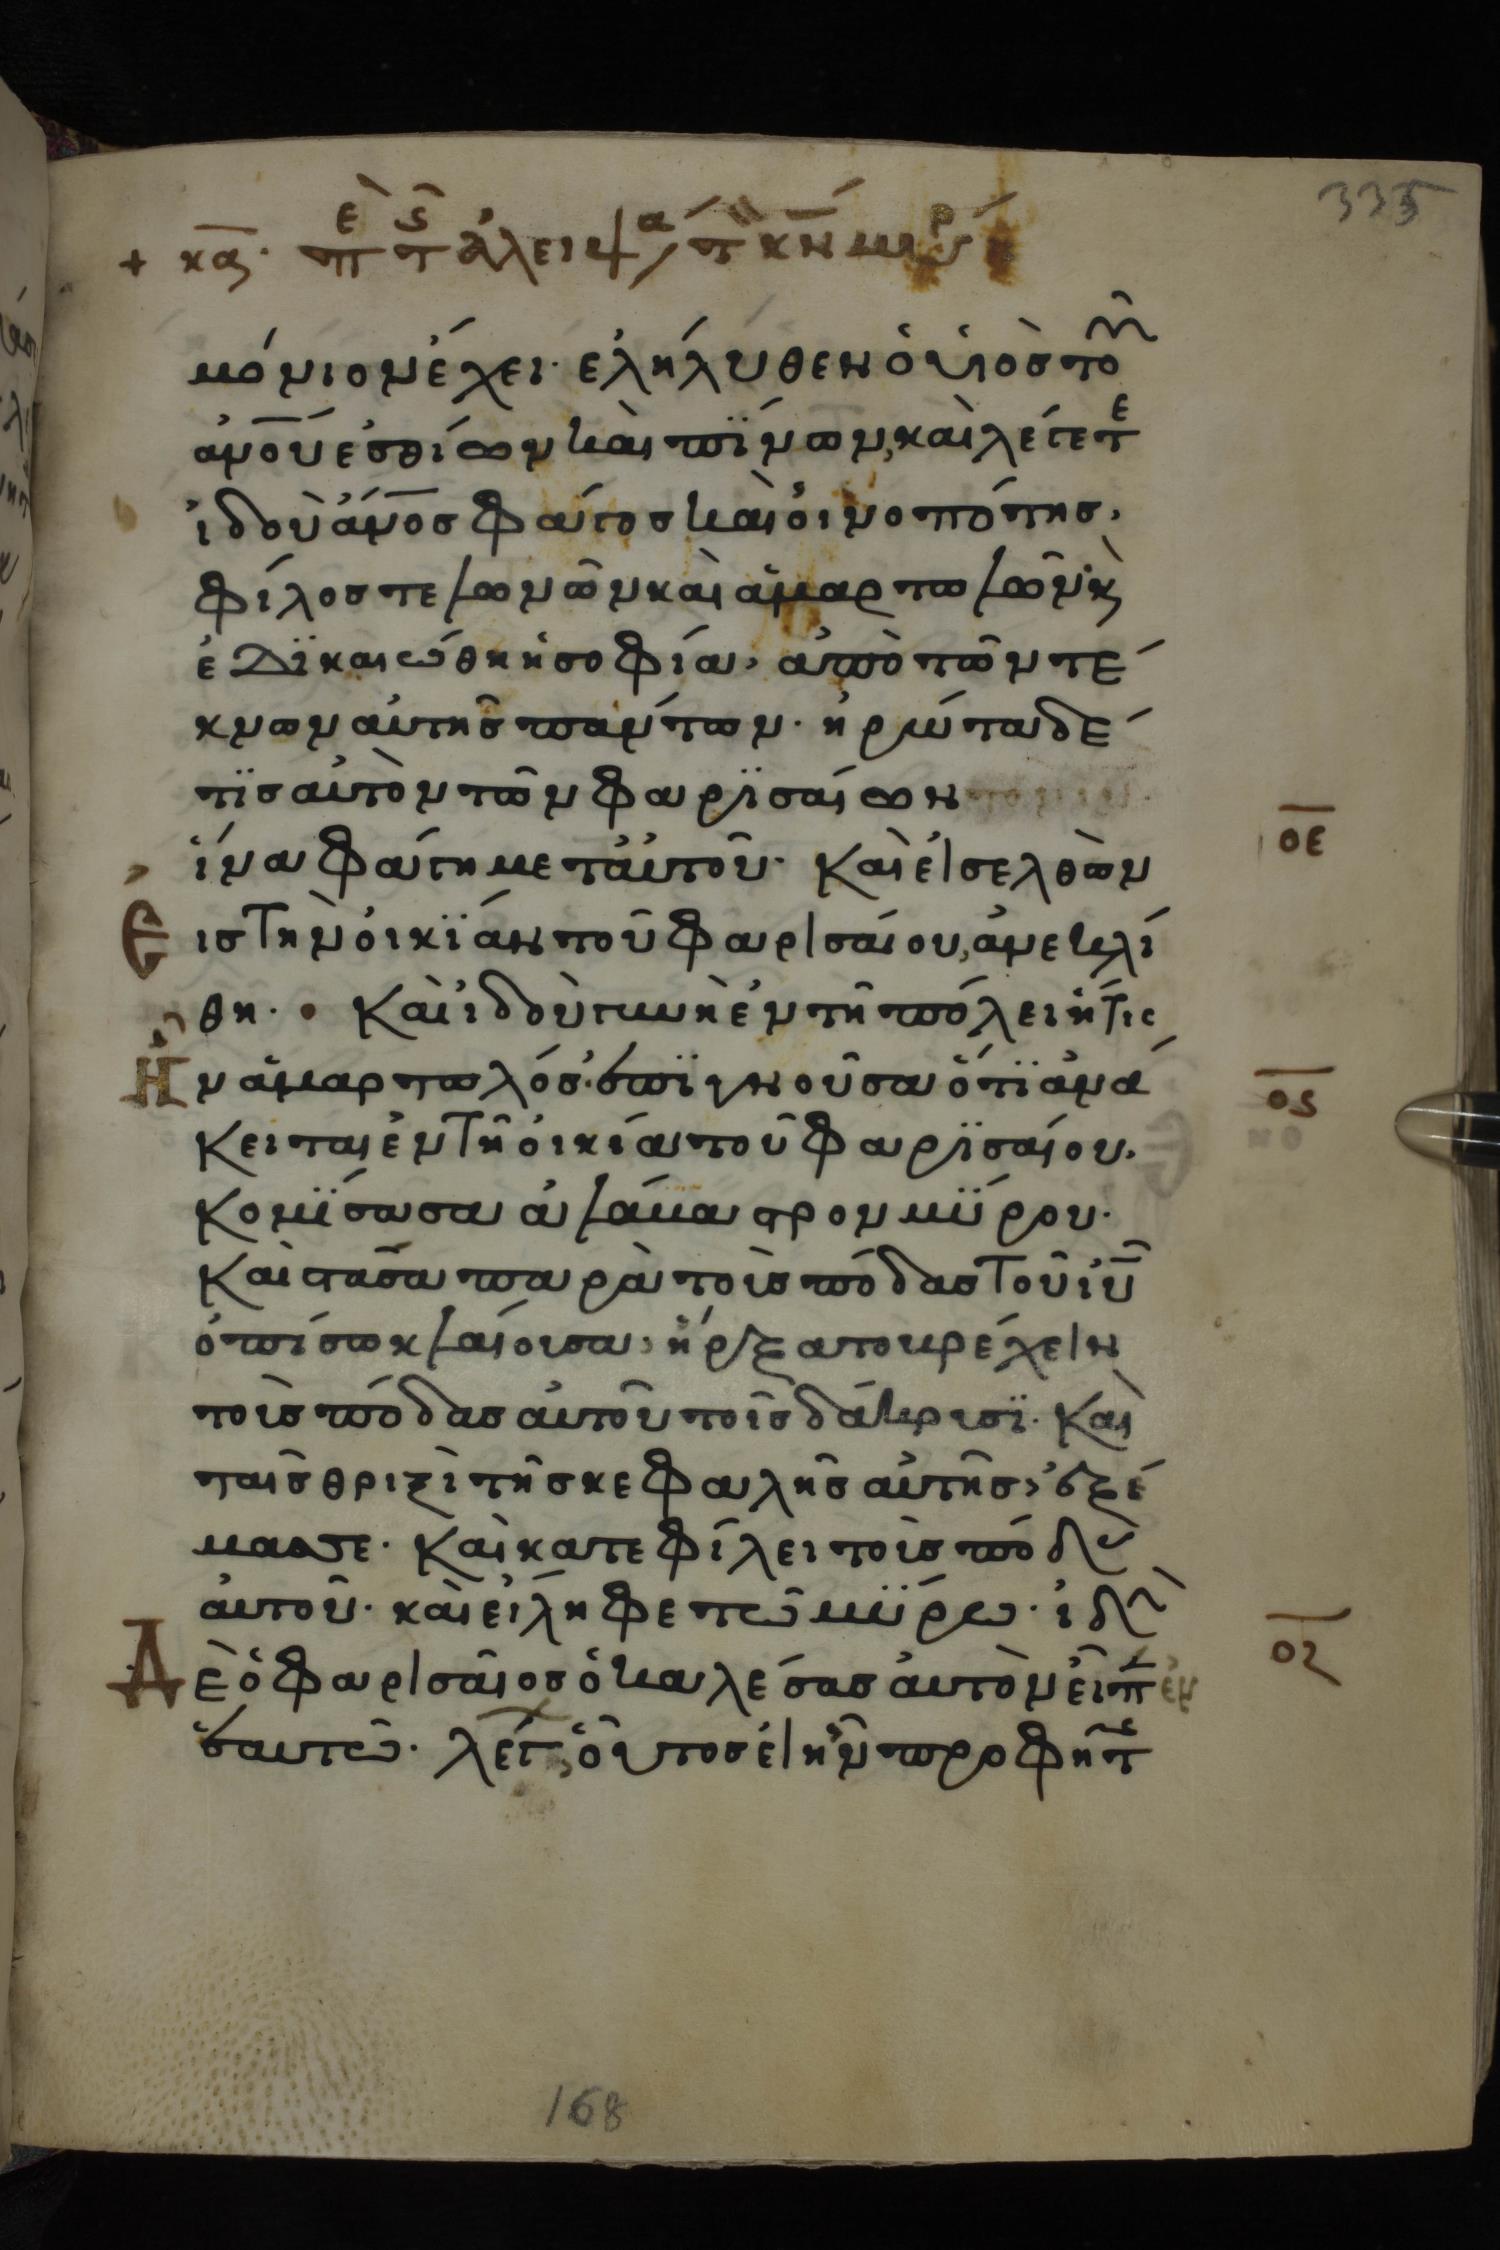 335
+ κα· πὲ τς ἀλειψα τ κν μύρω
μόνιον ἔχει· ἐλήλυθεν ὁ υἱὸς το͂
ἀνο͞υ ἐσθίων καὶ πΐνων, καὶ λέγετε
ἰδοὺ ἄν͞ος φάγος καὶ οἰνοπότης,
φίλος τελωνῶν καὶ ἁμαρτωλῶν κ̀
ἐδϊκαιώθη ἡ σοφία, ἀπὸ τῶν τέ
κνων αὐτῆς πάντων· ἠρώτα δέ
τϊς αὐτὸν τῶν φαρϊσαίων
ἵνα φάγη μετ᾽ αὐτοῦ· Καὶ εἰσελθὼν
οε
Ἐισ τὴν οἰκϊάν τοῦ φαρισαίου, ἀνεκλί
θη· Καὶ ἰδοὺ γυνὴ ἐν τῆ πόλει ἥτις
Ἦν ἁμαρτωλός· ἐπϊγνοῦσα ὅτϊ ἀνά
ος
Κειται ἐν τῆ οἰκία τοῦ φαρϊσαίου,
Κομΐσασα ἀλάβαστρον μΰρου·
Καὶ στᾶσα παρὰ τοὺς πόδας τοῦ ἰ͞υ
ὀπίσω κλαίουσα, ἤρξατο βρέχειν
τοὺς πόδας αὐτοῦ τοῖς δάκρυσϊ· Καὶ
ταῖς θριξὶ τῆς κεφαλῆς αὐτῆς, ἐξέ
μασσε· Καὶ κατεφίλει τοὺς πόδας
αὐτοῦ· καὶ εἴληφε τῶ μΰρω· ἰδὼν
Δὲ ὁ φαρισαῖος ὁ καλέσας αὐτὸν εἶπ ἐν
οζ
ἑαυτῶ· λέγ, οὗτος εἰ ἦν προφήτ
168